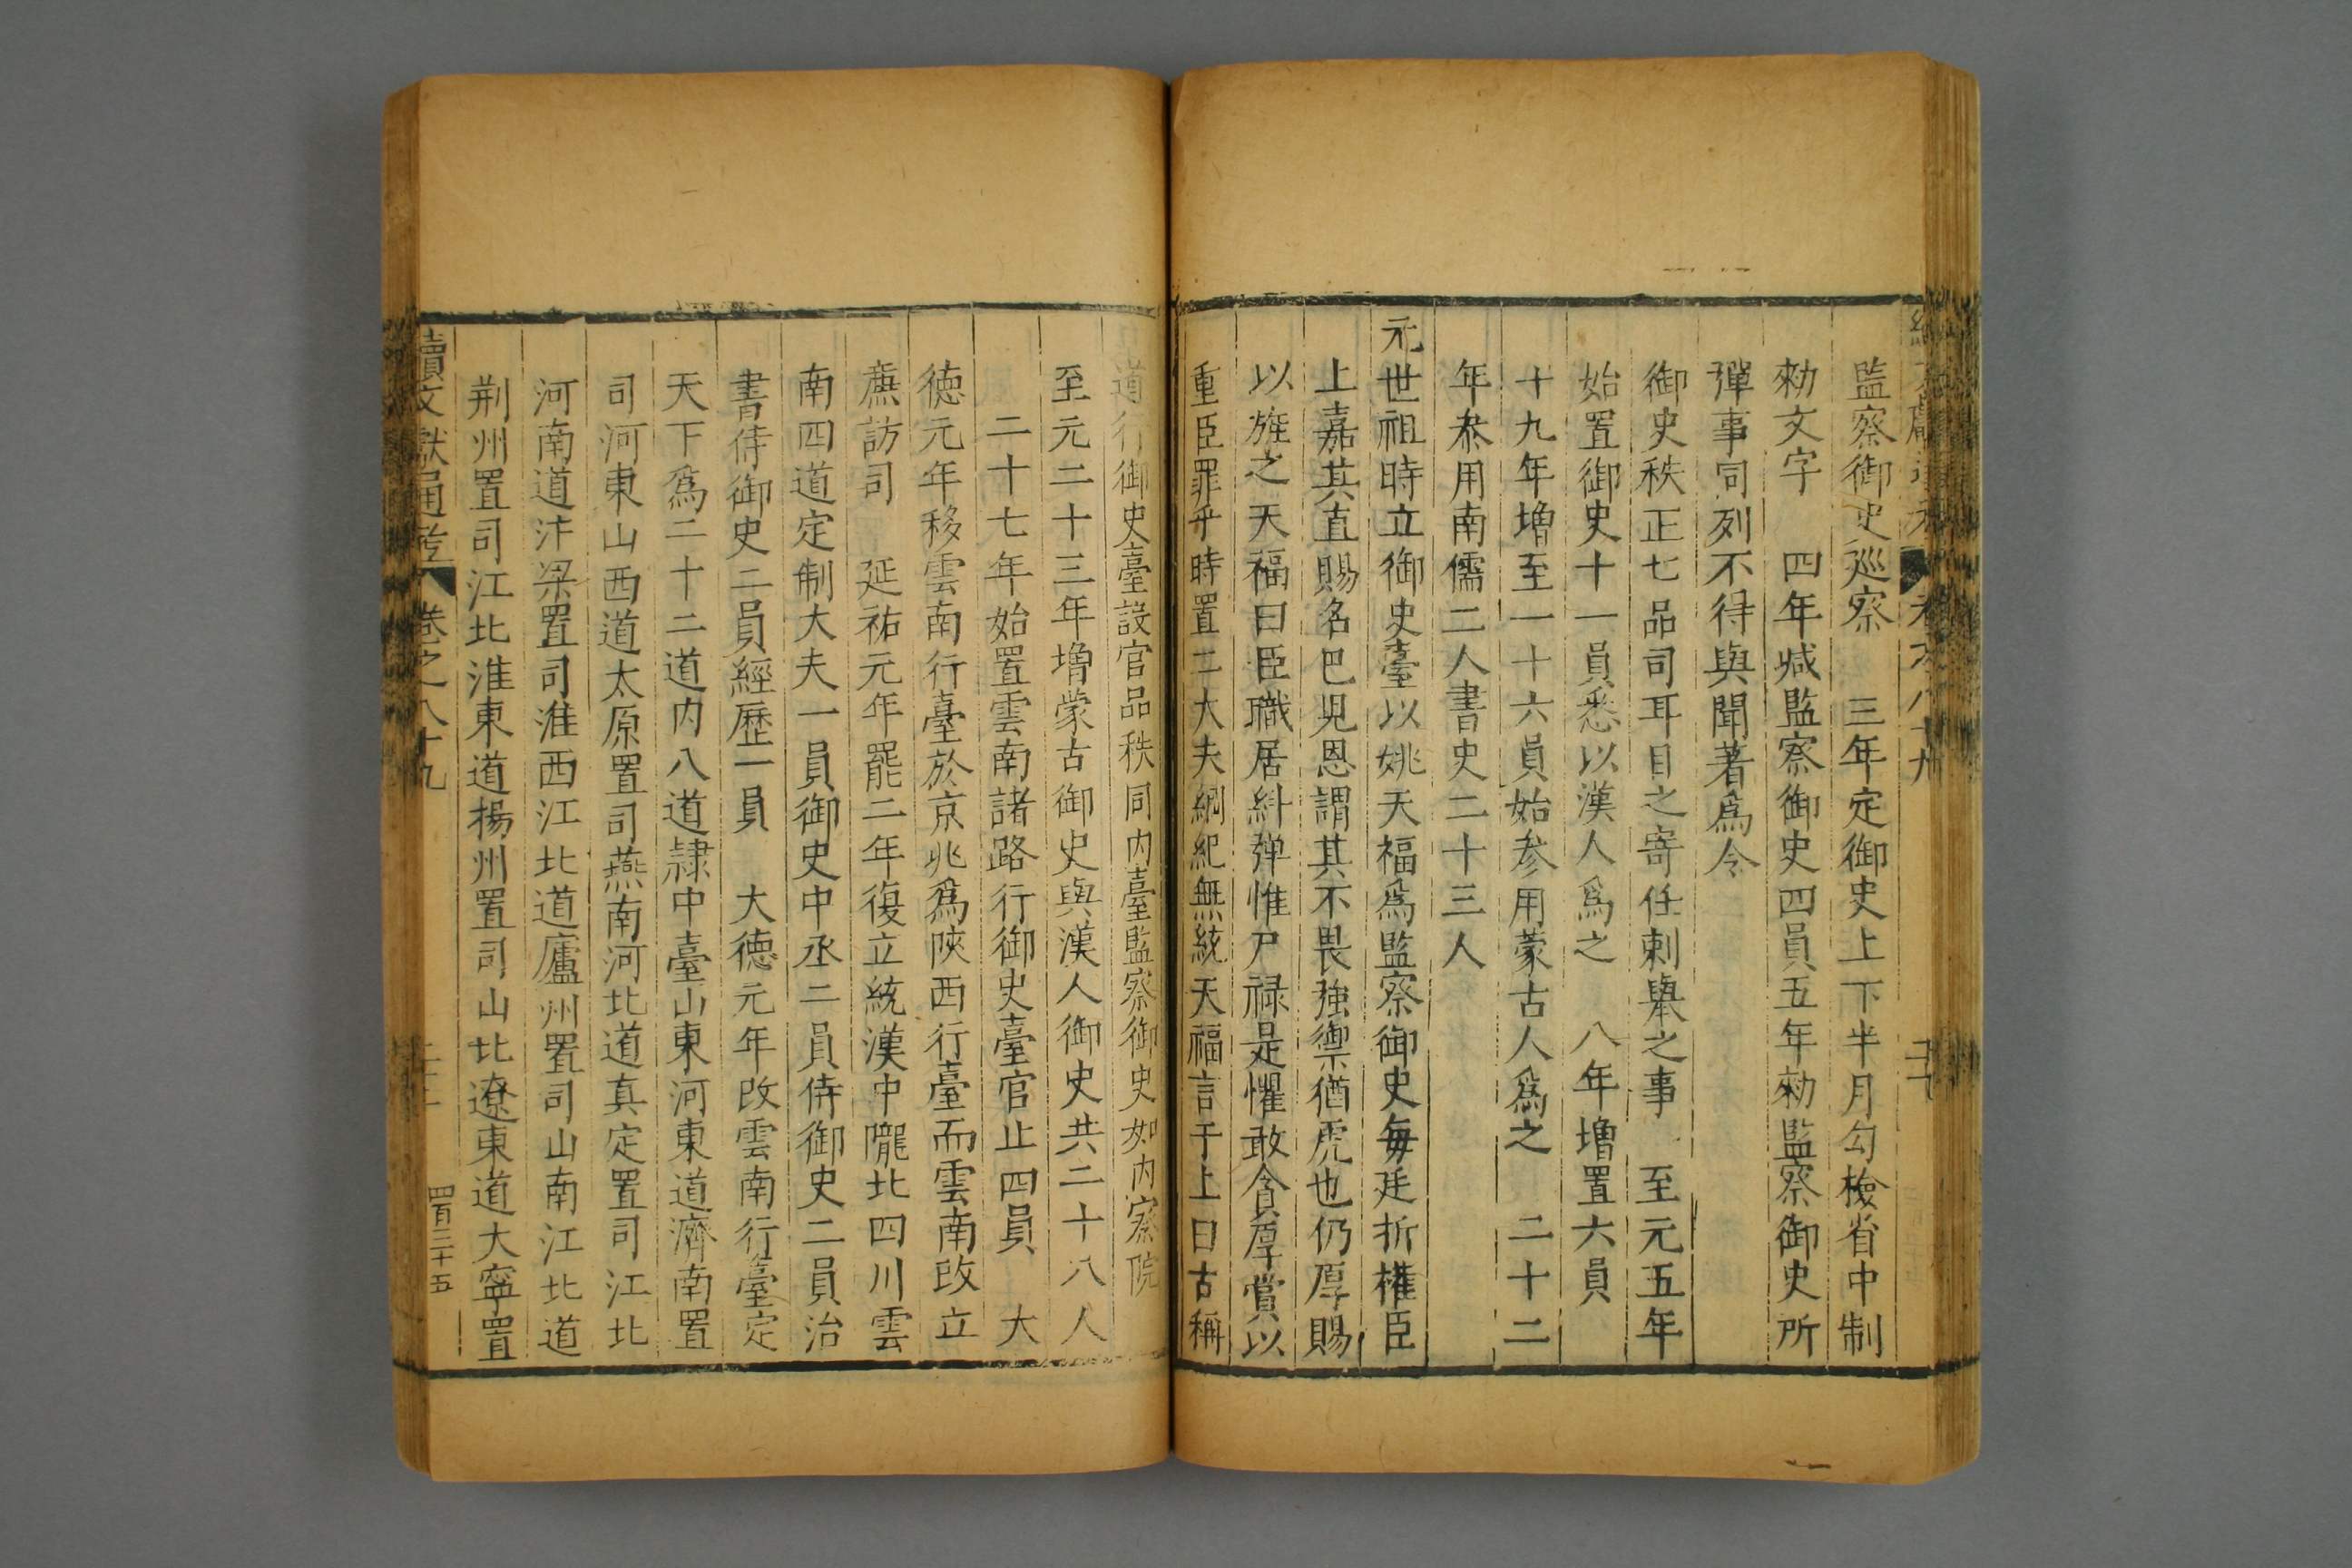 監察御史巡察　三年定御史上下半月勾檢省中制
勑文字　四年減監察御史四員五年勑監察御史所
彈事同列不得與聞著爲令
御史秩正七品司耳目之寄任刺舉之事　至元五年
始置御史十一員悉以漢人爲之　八年增置六員
十九年增至一十六員始参用蒙古人爲之　二十二
年叅用南儒二人書史二十三人
元世祖時立御史臺以姚天福爲監察御史每廷折權臣
上嘉其直賜名巴児恩謂其不畏強禦猶虎也仍厚賜
以旌之天福曰臣職居糾彈惟尸禄是懼敢貪厚賞以
重臣罪乎時置二大夫綱紀無統天福言于上曰古稱
道行御史臺設官品秩同内臺監察御史如内察院
至元二十三年増蒙古御史與漢人御史共二十八人
二十七年始置雲南諸路行御史臺官止四員　大
德元年移雲南行臺於京兆爲陜西行臺而雲南改立
㢘訪司　延祐元年罷二年復立統漢中隴北四川雲
南四道定制大夫一員御史中丞二員侍御史二員治
書侍御史二員經歷一員　大德元年改雲南行臺定
天下爲二十二道内八道隷中臺山東河東道濟南置
司河東山西道太原置司燕南河北道真定置司江北
河南道汴梁置司淮西江北道廬州置司山南江北道
荆州置司江北淮東道揚州置司山北遼東道大寧置
續文獻通考　卷之八十九　四百二十五